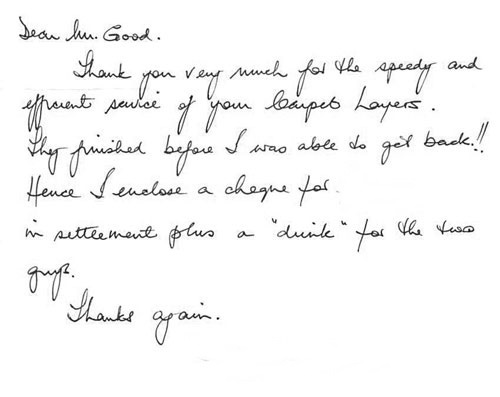 Dear Mr. Good.
Thank you very much for the speedy and
efficient service of your Carpet Layers.
They finished before I was able to get back!!
Hence I enclose a cheque for
in settlement plus a "drink" for the two
guys.
Thanks again.